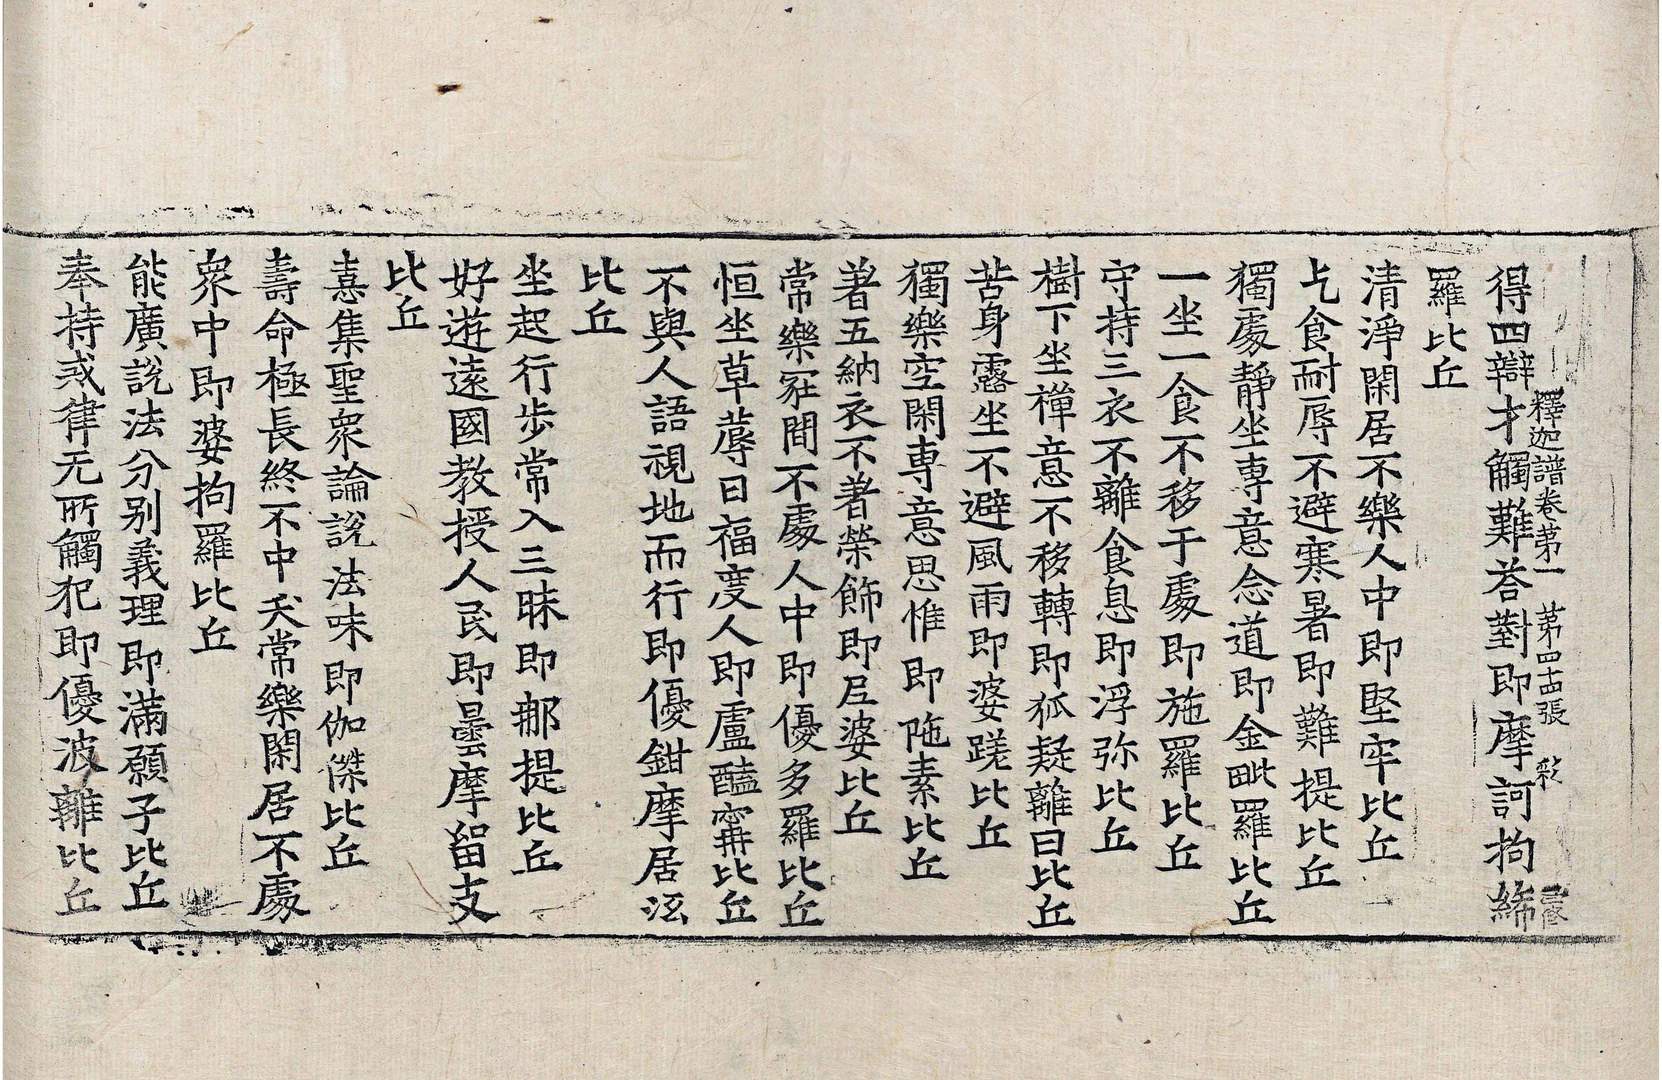 釋迦譜卷第一　第四十四張　彩
得四辯才觸難荅對即摩訶拘絺
羅比丘
清淨閑居不樂人中即堅牢比丘
乞食耐辱不避寒暑即難提比丘
獨處靜坐專意念道即金毗羅比丘
一坐一食不移于處即施羅比丘
守持三衣不離食息即浮弥比丘
樹下坐禪意不移轉即狐疑離曰比丘
苦身露坐不避風雨即婆蹉比丘
獨樂空閑專意思惟即陁素比丘
著五納衣不著榮飾即𡰱婆比丘
常樂冡間不處人中即優多羅比丘
恒坐草蓐日福度人即盧醯寗比丘
不與人語視地而行即優鉗摩居泫
比丘
坐起行步常入三昧即𨚗提比丘
好遊遠國教授人民即曇摩留支
比丘
憙集聖衆論說法味即伽傑比丘
壽命極長終不中夭常樂閑居不處
衆中即婆拘羅比丘
能廣說法分别義理即滿願子比丘
奉持戒律无所觸犯即優波離比丘